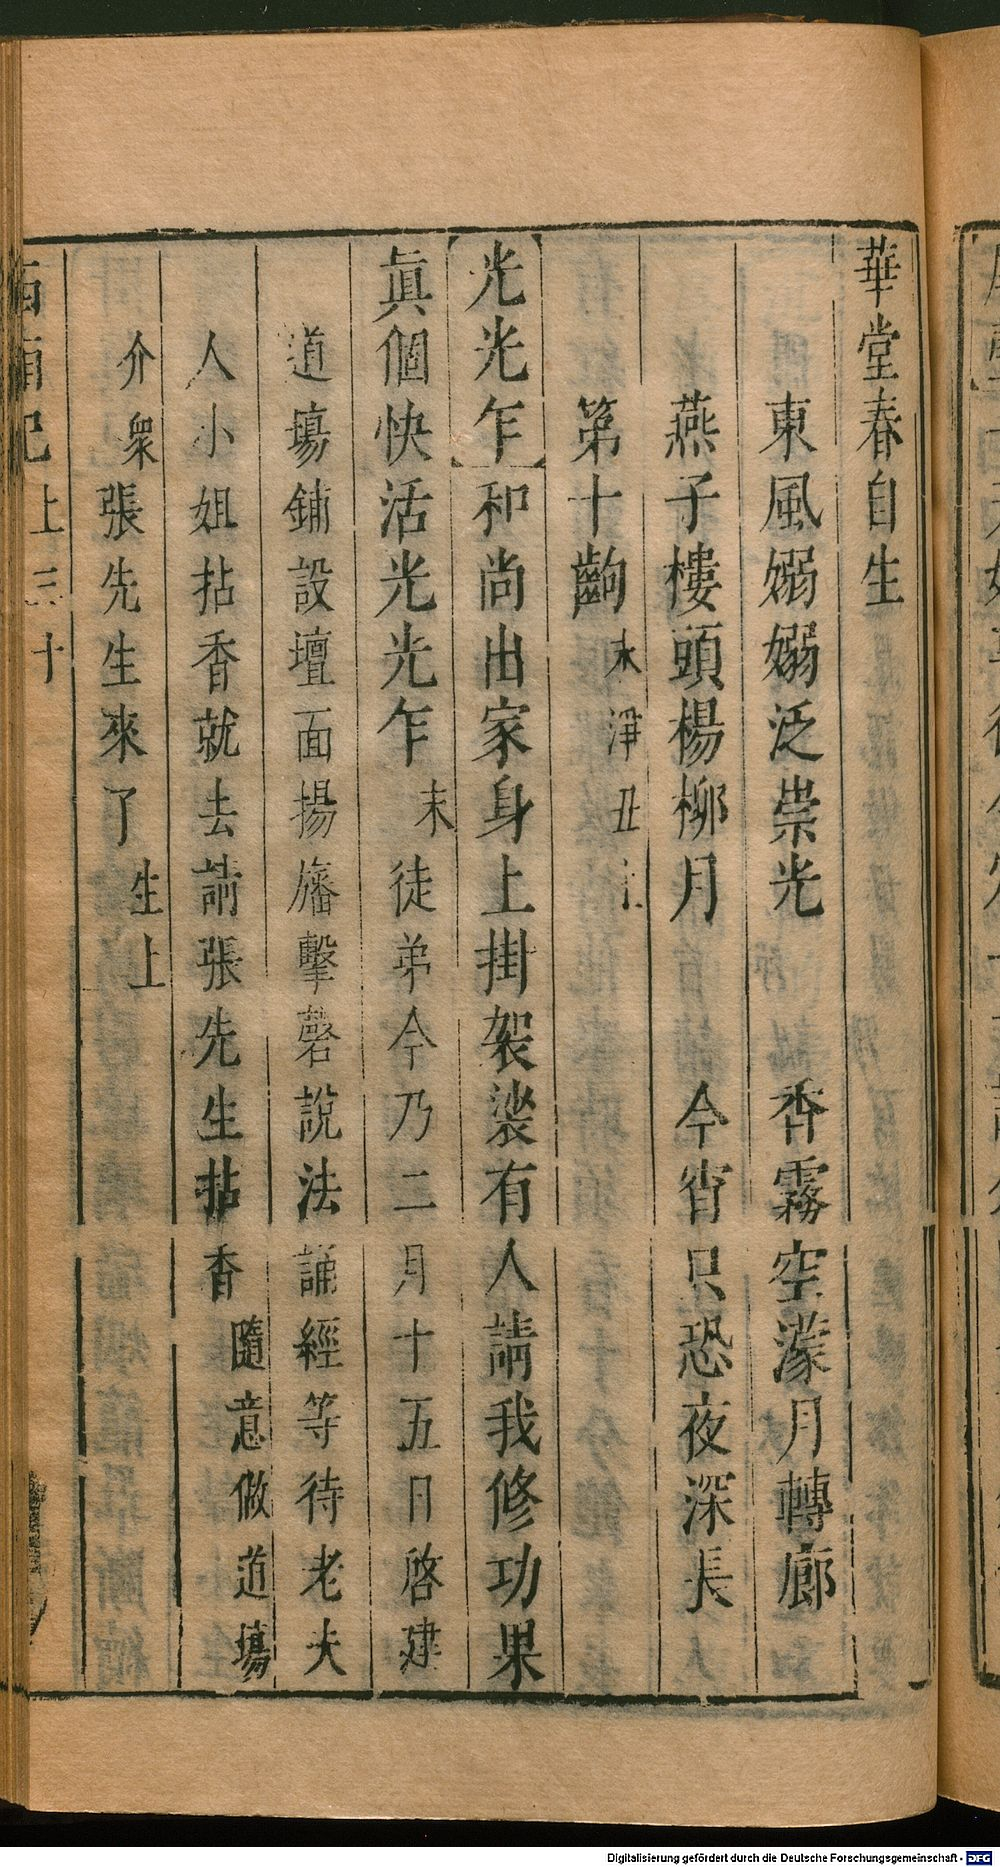 華堂春自生
東風嫋嫋泛崇光　香霧空濛月轉廊
燕子樓頭楊柳月　今宵只恐夜深長
第十齣 末 淨 丑 上
光光乍 和尚出家身上掛袈裟有人請我修功果
眞個快活光光乍 末 徒弟今乃二月十五日啓建
道場鋪設壇面揚旛擊磬說法誦經等待老夫
人小姐拈香就去請張先生拈香 隨意做道場
介 衆 張先生來了 生上
西廂記 上 三十
Digitalisierung gefördert durch die Deutsche Forschungsgemeinschaft - DFG